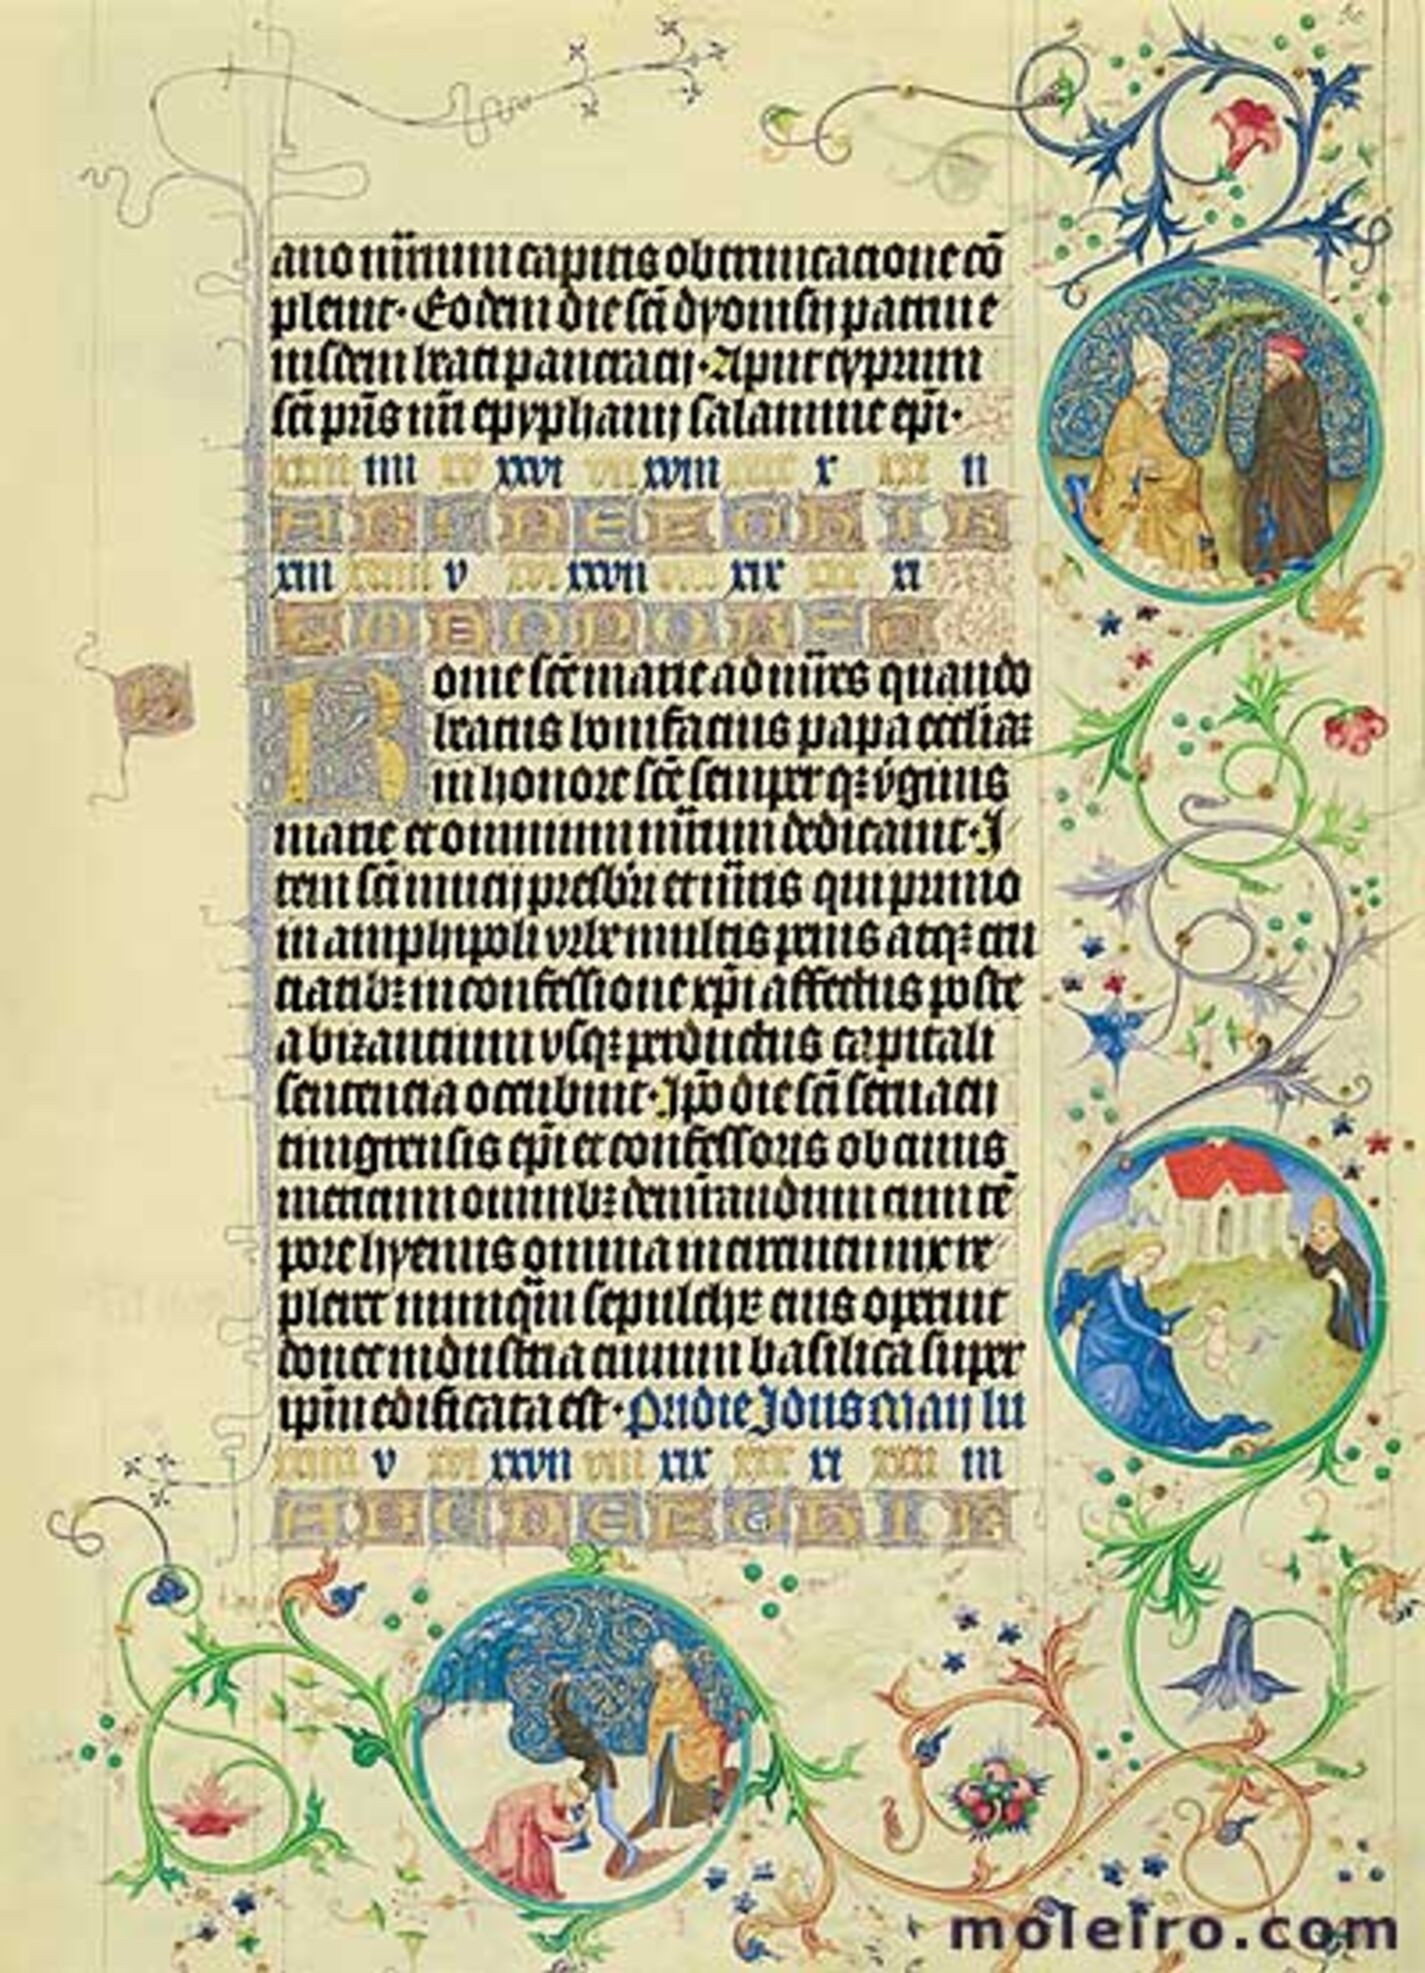 ano nr̄m̄ capitis obtruncacione cō
pleuit · Eodem die sc̄i dyonisij patrui e
iusdem beati pancracij · Aput cyprum
sc̄i pr̄is nr̄i epyphanij salamine ep̄i ·
xxiii iiii xv xxvi vii xviii xxix x xxi ii
A B C D E E G H I K
xiii xxiiii v xvi xxvii viii xix xxx xi
Rome sc̄e marie ad mr̄es quando
beatus bonifacius papa eccl̄iaꝫ
in honore sc̄e semper qꝫ v̄ginis
marie et omnium mr̄um dedicauit · I
tem sc̄i mucij presbr̄i et mr̄is qui primo
in amphipoli vrbe multis penis atqꝫ cru
ciatibꝫ in confessione xp̄i affectus poste
a bizantium vsqꝫ perductus capitali
sentencia occubuit · Ip̄o die sc̄i seruacij
tungrensis ep̄i et confessoris ob cuius
meritum omnibꝫ demr̄andum cum tē
pore hyemis omnia in circuitu nix re
pleret numqūm sepulchꝝ eius operuit
donec industria ciuium basilica super
ip̄m edificata est · Pridie Idus Maij lu
xxiiii v xvi xxvii viii xix xxx xi xxii iii
A B C D E E G H I K
moleiro.com